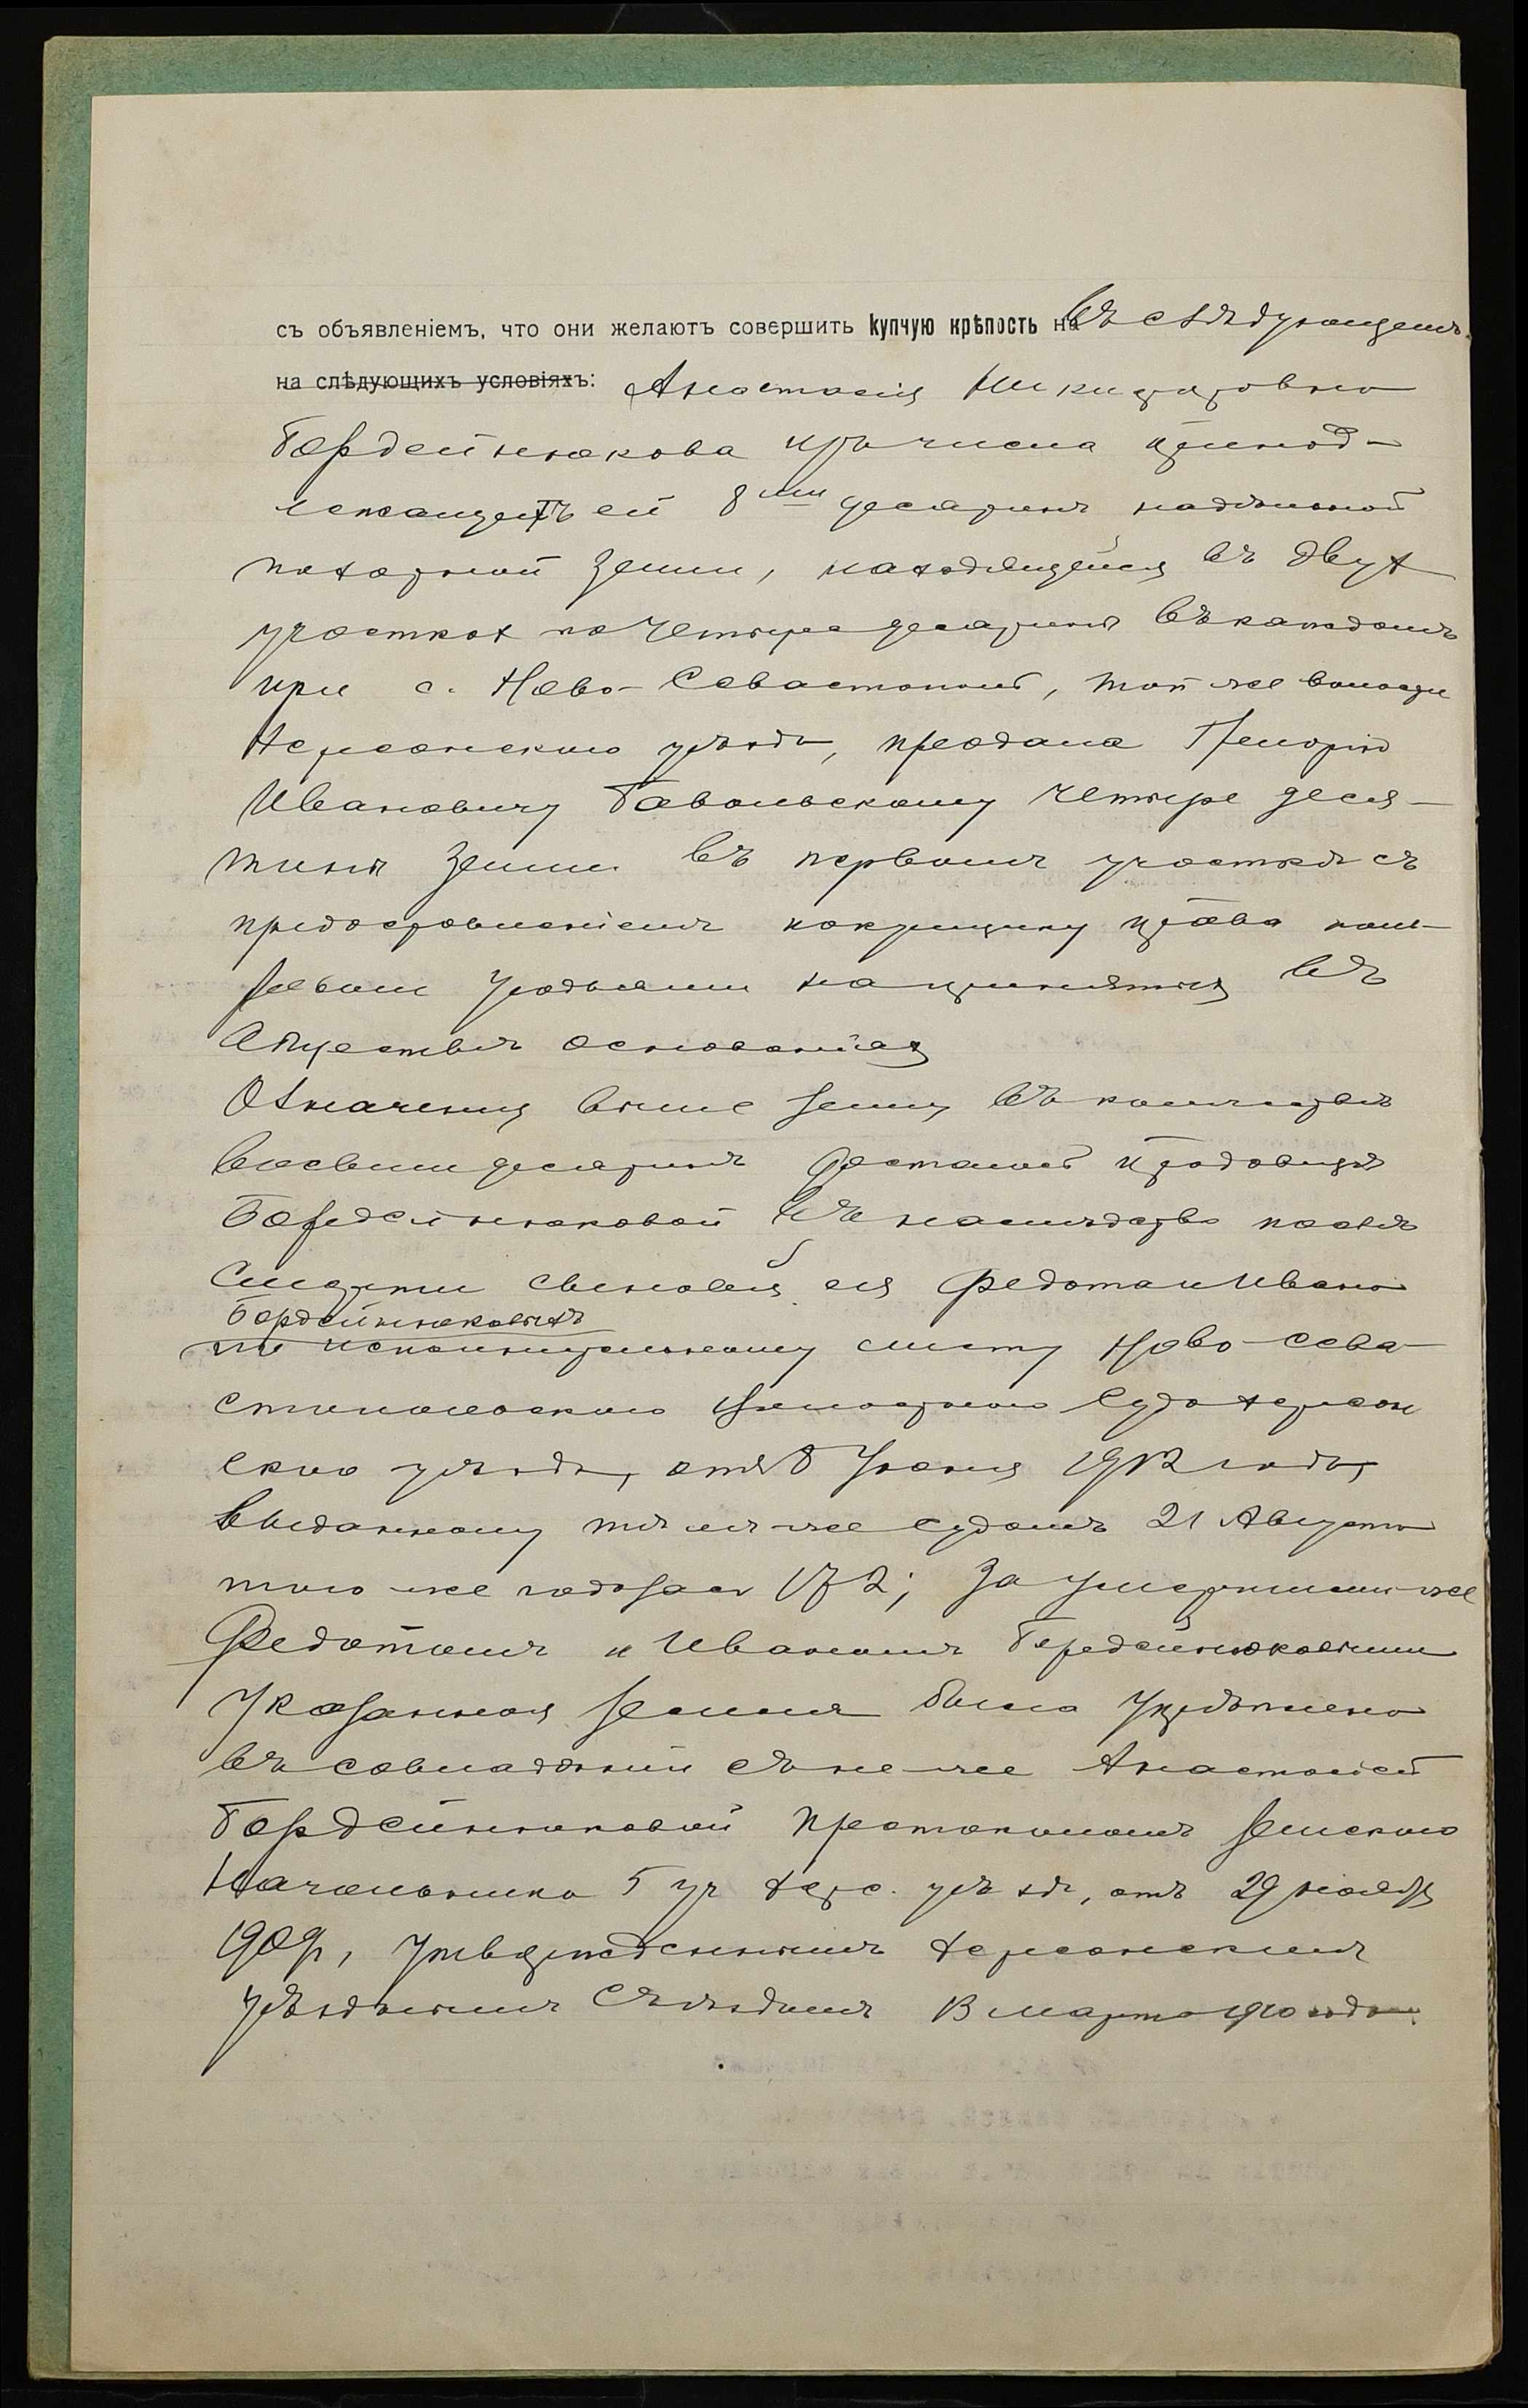 съ объявленіемъ, что они желаютъ совершить купчую крѣпость на въ слѣдующемъ
на слѣдующихъ условіяхъ: Анастасія Никифоровна
Бордейнюкова изъ числа принад-
лежащихъ ей 8ми десятинъ надѣльной
пахотной земли, находящейся въ двух
участках по четыре десятины въ каждомъ
при с. Ново-Севастополѣ, той же волости
Херсонскаго уѣзда, продала Григорію
Ивановичу Бавольскому четыре деся-
тины земли въ первомъ участкѣ съ
предоставленіемъ покупщику права поль-
зованія угодьями на принятыхъ въ
Обществѣ основаніяхъ
Означенная выше земля въ количествѣ
восьми десятинъ досталась продавщицѣ
Бордейнюковой въ наслѣдство послѣ
смерти сыновей ея Федота и Ивана
Бордейнюковыхъ
по исполнительному листу Ново-Сева-
стопольскаго волостного Суда Херсон
скаго уѣзда, отъ 8 Іюня 1912 года,
выданному тѣмъ же судомъ 21 Августа
того же года за № 172; за умершими же
Федотомъ и Иваномъ Бордейнюковыми
указанная земля была укрѣплена
въ совладѣніи съ нею же Анастасіей
Бордейнюковой протоколомъ Земскаго
Начальника 5 уч Херс. уѣзда, отъ 29 ноября
1909, утвержденнымъ Херсонскимъ
уѣзднымъ Съѣздомъ 13 марта 1910 года.